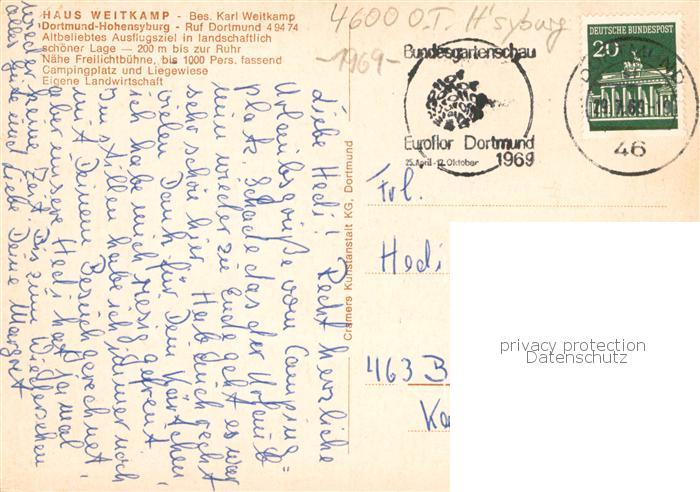 HAUS WEITKAMP - Bes. Karl Weitkamp
Dortmund-Hohensyburg - Ruf Dortmund 4 94 74
Altbeliebtes Ausflugsziel in landschaftlich
schöner Lage — 200 m bis zur Ruhr
Nähe Freilichtbühne, bis 1000 Pers. fassend
Campingplatz und Liegewiese
Eigene Landwirtschaft
4600 O.T. H'syburg
-1969-
Bundesgartenschau
Euroflor Dortmund
25. April - 12. Oktober 1969
DEUTSCHE BUNDESPOST
20
46
Liebe Hedi! Recht herzliche
Urlaubsgrüße vom Camping=
platz. Schade das der Urlaub
nun wieder zu Ende geht es war
sehr schön hier. Hab auch recht
vielen Dank für Dein Kärtchen
ich habe mich riesig gefreut.
Im stillen habe ich immer noch
mit Deinem Besuch gerechnet
aber unsere Hedi hat ja mal
wieder keine Zeit. Bis zum Wiedersehen
alles gute und Liebe Deine Margret
Cramers Kunstanstalt KG, Dortmund
Frl.
Hedi
463 B
privacy protection
Datenschutz